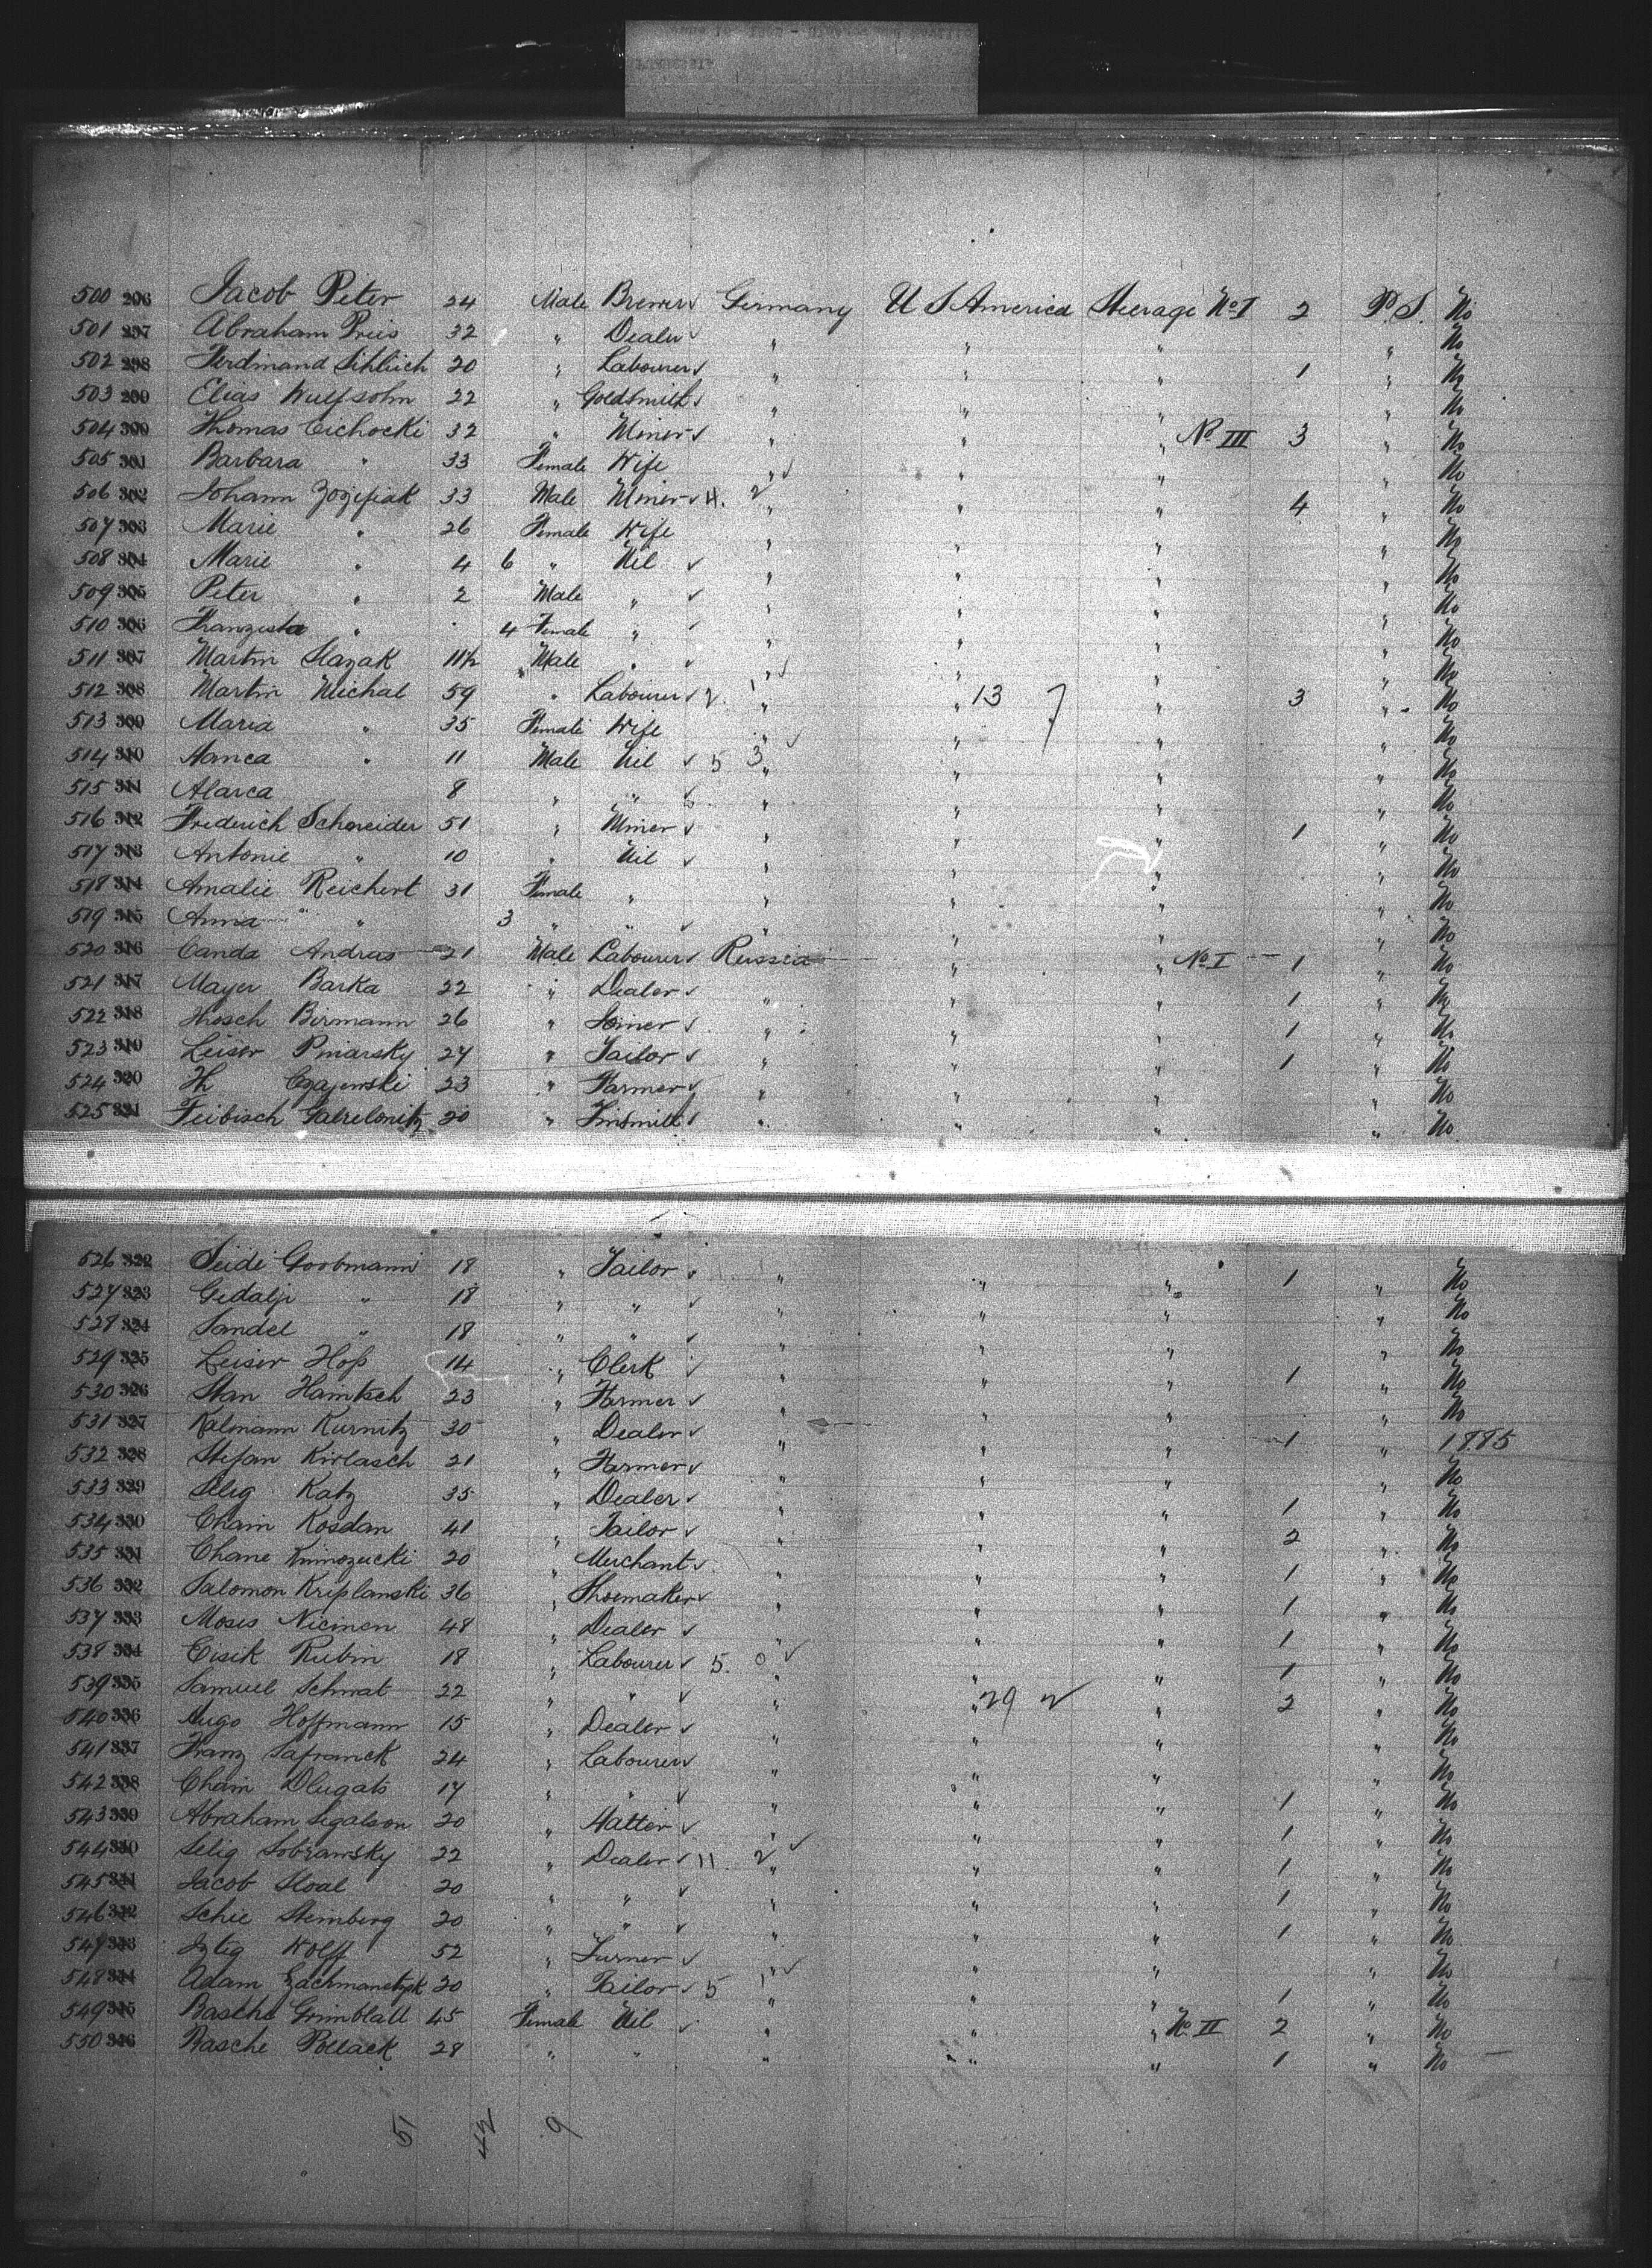 500 296 Jacob Peter 24 Male Brewer Germany U S America Steerage No I 2 P. S. No
501 297 Abraham Preis 32 " Dealer " " " " No
502 298 Ferdinand Schlüch 20 " Labourer " " " 1 " No
503 299 Elias Wulfsohn 22 " Goldsmith " " " " No
504 300 Thomas Cichocki 32 " Miner " " " No III 3 " No
505 301 Barbara " 33 Female Wife " " " " No
506 302 Johann 33 Male Miner 4. 2 " " " 4 " No
507 303 Marie " 26 Female Wife " " " " No
508 304 Marie " 4 6 " Nil " " " " No
509 305 Peter " 2 Male " " " " " No
510 306 Franziska " 4 Female " " " " " No
511 307 Martin Slazak 11½ Male " " " " " No
512 308 Martin Michal 59 " Labourer 2. 1 " " 13 7 " 3 " No
513 309 Maria " 35 Female Wife " " " " No
514 310 Hanca " 11 Male Nil 5 3 " " " " No
515 311 Alarca 8 " " " " " " No
516 312 Frederich Schneider 51 " Miner " " " 1 " No
517 313 Antonie " 10 " Nil " " " " No
518 314 Amalie Reichert 31 Female " " " " " No
519 315 Anna " 3 " " " " " " No
520 316 Canda Andras 21 Male Labourer Russia " " No I 1 " No
521 317 Mayer Barka 22 " Dealer " " " 1 " No
522 318 Hosch Birmann 26 " Joiner " " " 1 " No
523 319 Leiser Pinarsky 27 " Tailor " " " 1 " No
524 320 H Czajewski 23 " Farmer " " " " No
525 321 Feibisch 20 " Tinsmith " " " " No
526 322 Seide Goobmann 18 " Tailor " " " 1 " No
527 323 Gedalje " 18 " " " " " " No
528 324 Sandel " 18 " " " " " " No
529 325 Leiser Hoß 14 " Clerk " " " 1 " No
530 326 Stan Hamtsch 23 " Farmer " " " " No
531 327 Kalmann Kurnitz 30 " Dealer " " " 1 " 1885
532 328 Stefan Kirlasch 21 " Farmer " " " " No
533 329 Selig Katz 35 " Dealer " " " 1 " No
534 330 Chain Kosdan 41 " Tailor " " " 2 " No
535 331 Chane 20 " Merchant " " " 1 " No
536 332 Salomon Kriplanski 36 " Shoemaker " " " 1 " No
537 333 Moses Nieinen 48 " Dealer " " " 1 " No
538 334 Eisik Rubin 18 " Labourer 5. 0 " " " 1 " No
539 335 Samuel Schmat 22 " " " " 29 2 " 2 " No
540 336 Hugo Hoffmann 15 " Dealer " " " " No
541 337 Franz Safranck 24 " Labourer " " " " No
542 338 Chain Dlugats 17 " " " " " 1 " No
543 339 Abraham Segalson 20 " Hatter " " " 1 " No
544 340 Selig Sobzansky 22 " Dealer 11. 2 " " " 1 " No
545 341 Jacob Sloal 20 " " " " " 1 " No
546 342 Schie Steinberg 20 " " " " " 1 " No
547 343 Izteg Wolff 52 " Turner " " " " No
548 344 Adam 20 " Tailor 5 1 " " " 1 " No
549 345 Basche Grinblatt 45 Female Nil " " " No II 2 " No
550 346 Basche Pollack 28 " " " " " 1 " No
51 42 9